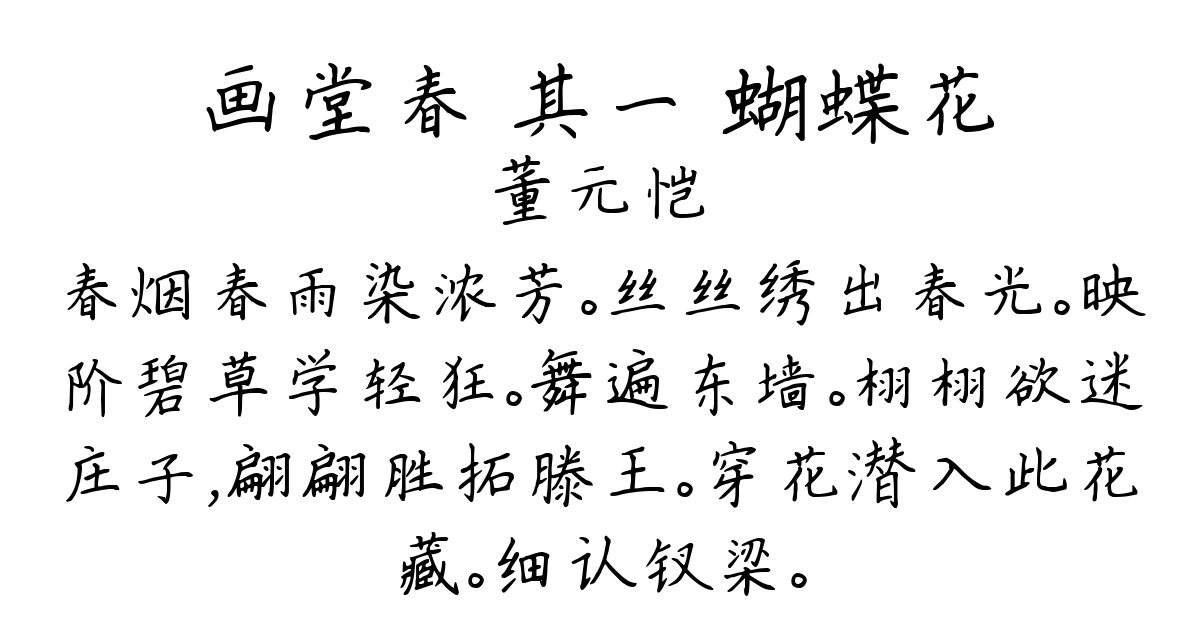 画堂春 其一 蝴蝶花
董元恺
春烟春雨染浓芳。丝丝绣出春光。映
阶碧草学轻狂。舞遍东墙。栩栩欲迷
庄子,翩翩胜拓滕王。穿花潜入此花
藏。细认钗梁。